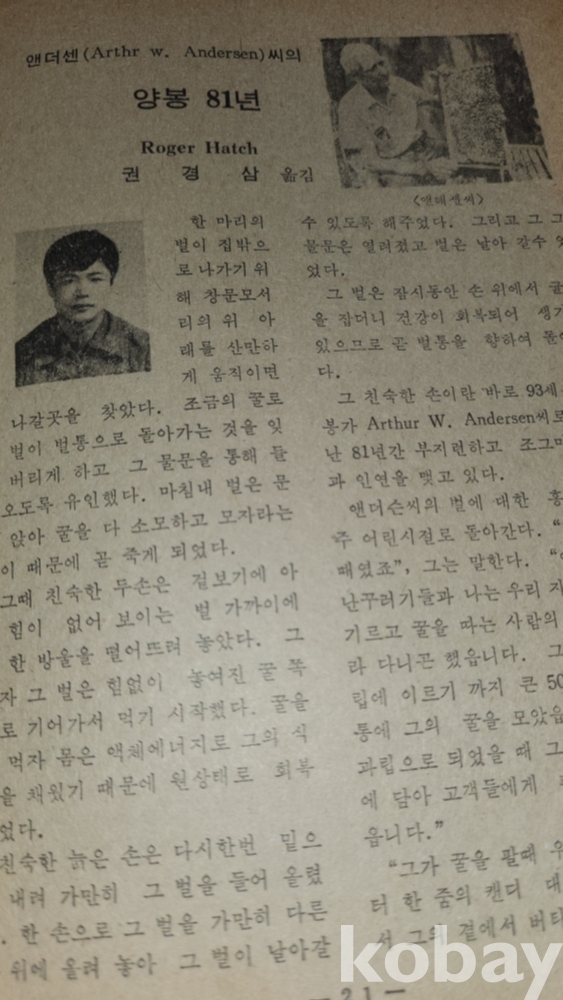 앤더센(Arthr w. Andersen)씨의
양봉 81년
Roger Hatch
권 경 삼 옮김
<앤데센씨>
한 마리의
벌이 집밖으
로 나가기 위
해 창문모서
리의 위 아
래를 산만하
게 움직이면
나갈곳을 찾았다. 조금의 꿀로
벌이 벌통으로 돌아가는 것을 잊
버리게 하고 그 물문을 통해 들
오도록 유인했다. 마침내 벌은 문
앉아 꿀을 다 소모하고 모자라는
이 때문에 곧 죽게 되었다.
그때 친숙한 두손은 겉보기에 아
힘이 없어 보이는 벌 가까이에
한 방울을 떨어뜨려 놓았다. 그
자 그 벌은 힘없이 놓여진 꿀 쪽
로 기어가서 먹기 시작했다. 꿀을
먹자 몸은 액체에너지로 그의 식
을 채웠기 때문에 원상태로 회복
었다.
친숙한 늙은 손은 다시한번 밑으
내려 가만히 그 벌을 들어 올렸
. 한 손으로 그 벌을 가만히 다른
위에 올려 놓아 그 벌이 날아갈
수 있도록 해주었다. 그리고 그
물문은 열려졌고 벌은 날아 갈수
었다.
그 벌은 잠시동안 손 위에서
을 잡더니 건강이 회복되어 생기
있으므로 곧 벌통을 향하여
다.
그 친숙한 손이란 바로 93세
봉가 Arthur W. Andersen씨로
난 81년간 부지련하고 조그마
과 인연을 맺고 있다.
앤더슨씨의 벌에 대한
주 어린시절로 돌아간다. “
때였죠”, 그는 말한다. “
난꾸러기들과 나는 우리
기르고 꿀을 따는 사람의
라 다니곤 했읍니다. 그
립에 이르기 까지 큰 50
통에 그의 꿀을 모았읍
과립으로 되었을 때 그
에 담아 고객들에게
읍니다.”
“그가 꿀을 팔때 우
터 한 줌의 캔디 대
서 그의 곁에서 버터
—21—
kobay